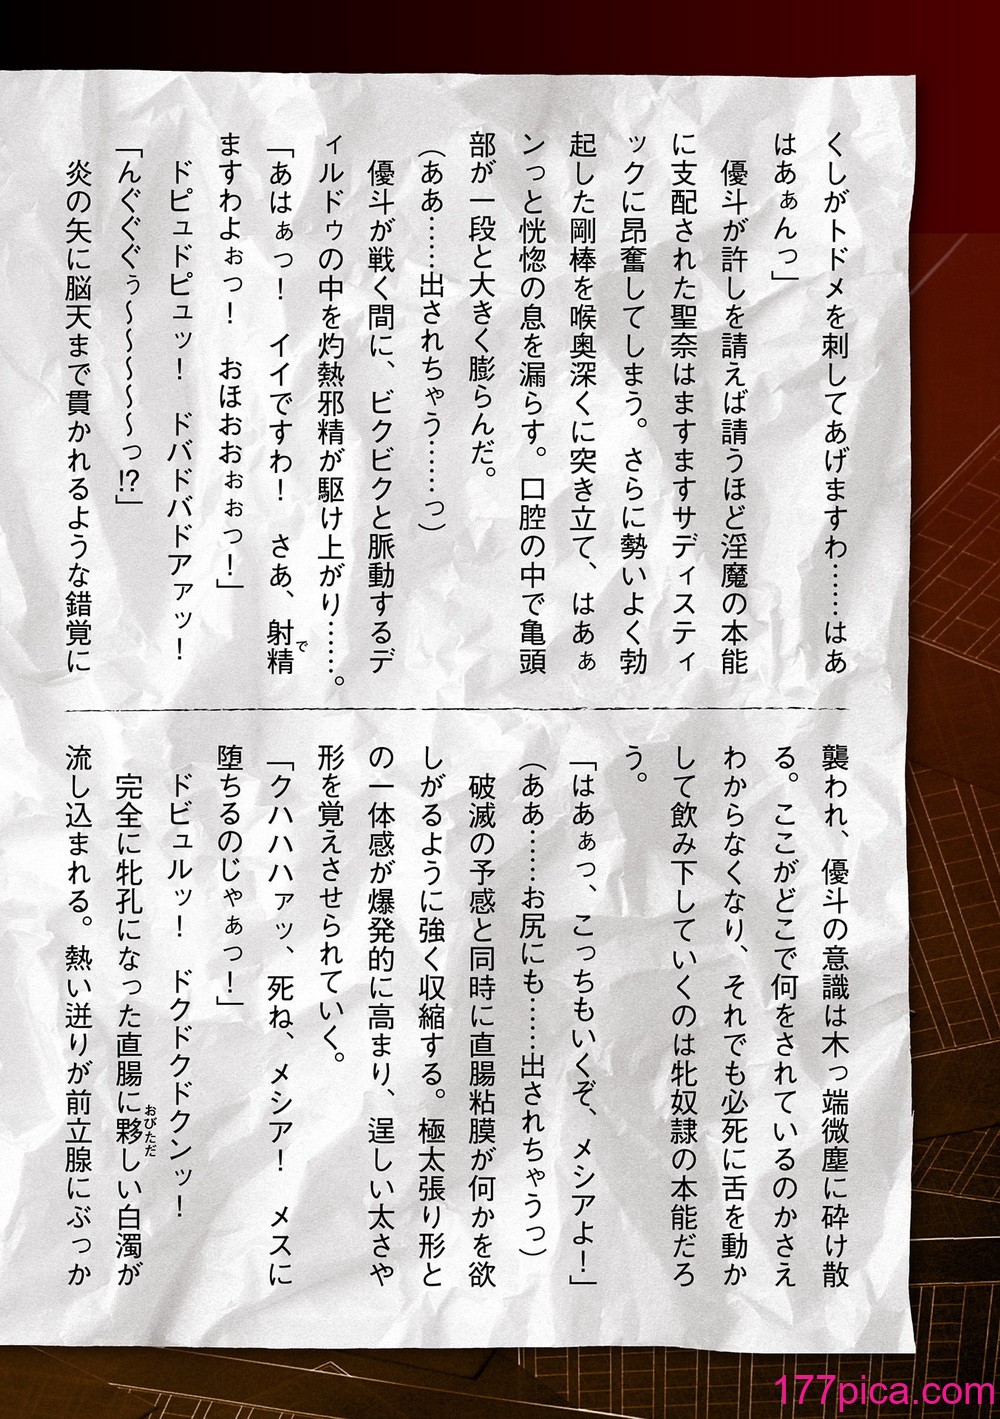 くしがトドメを刺してあげますわ……はあ
はあぁんっ」
優斗が許しを請えば請うほど淫魔の本能
に支配された聖奈はますますサディスティ
ックに昂奮してしまう。さらに勢いよく勃
起した剛棒を喉奥深くに突き立て、はあぁ
ンっと恍惚の息を漏らす。口腔の中で亀頭
部が一段と大きく膨らんだ。
(ああ……出されちゃう……っ)
優斗が戦く間に、ビクビクと脈動するデ
ィルドゥの中を灼熱邪精が駆け上がり……。
「あはぁっ！　イイですわ！　さあ、射精で
ますわよぉっ！　おほおおぉぉっ！」
ドピュドピュッ！　ドバドバドアァッ！
「んぐぐぐぅ～～～～～っ!?」
炎の矢に脳天まで貫かれるような錯覚に
襲われ、優斗の意識は木っ端微塵に砕け散
る。ここがどこで何をされているのかさえ
わからなくなり、それでも必死に舌を動か
して飲み下していくのは牝奴隷の本能だろ
う。
「はあぁっ、こっちもいくぞ、メシアよ！」
(ああ……お尻にも……出されちゃうっ)
破滅の予感と同時に直腸粘膜が何かを欲
しがるように強く収縮する。極太張り形と
の一体感が爆発的に高まり、逞しい太さや
形を覚えさせられていく。
「クハハハァッ、死ね、メシア！　メスに
堕ちるのじゃぁっ！」
ドビュルッ！　ドクドクドクンッ！
完全に牝孔になった直腸に夥おびただしい白濁が
流し込まれる。熱い迸りが前立腺にぶっか
177pica.com